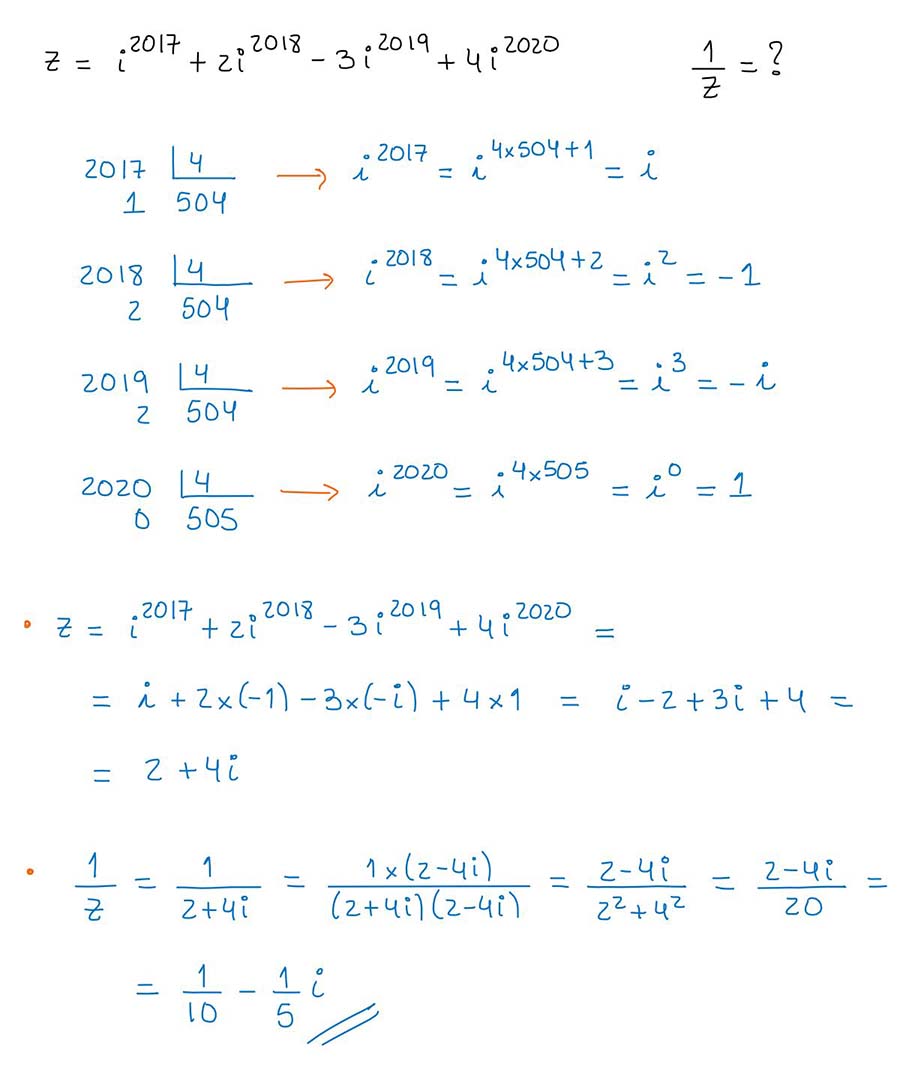 z = i^2017 + 2i^2018 - 3i^2019 + 4i^2020    1/z = ?
2017 |4 → i^2017 = i^(4×504+1) = i
1 504
2018 |4 → i^2018 = i^(4×504+2) = i^2 = -1
2 504
2019 |4 → i^2019 = i^(4×504+3) = i^3 = -i
2 504
2020 |4 → i^2020 = i^(4×505) = i^0 = 1
0 505
• z = i^2017 + 2i^2018 - 3i^2019 + 4i^2020 =
= i + 2×(-1) - 3×(-i) + 4×1 = i - 2 + 3i + 4 =
= 2 + 4i
• 1/z = 1/(2+4i) = 1×(2-4i)/((2+4i)(2-4i)) = (2-4i)/(2^2+4^2) = (2-4i)/20 =
= 1/10 - 1/5 i